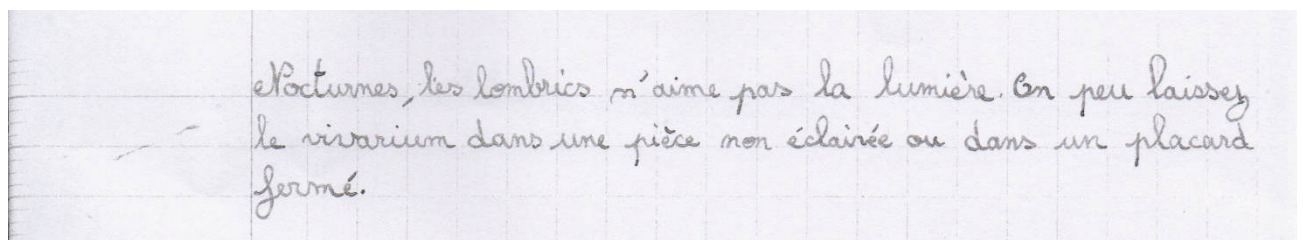 Nocturnes, les lombrics n'aime pas la lumière. On peu laissez
le vivarium dans une pièce non éclairée ou dans un placard
fermé.